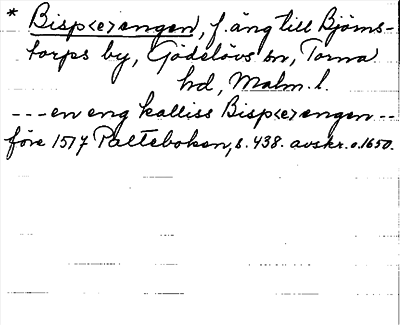 * Bisp<er>engen, f. äng till Björns-
torps by, Gödelövs sn, Torna
hd, Malm. l.
--- en eng kalliss Bisp<er>engen --
före 1517 Palteboken, s. 438. avskr. o. 1650.